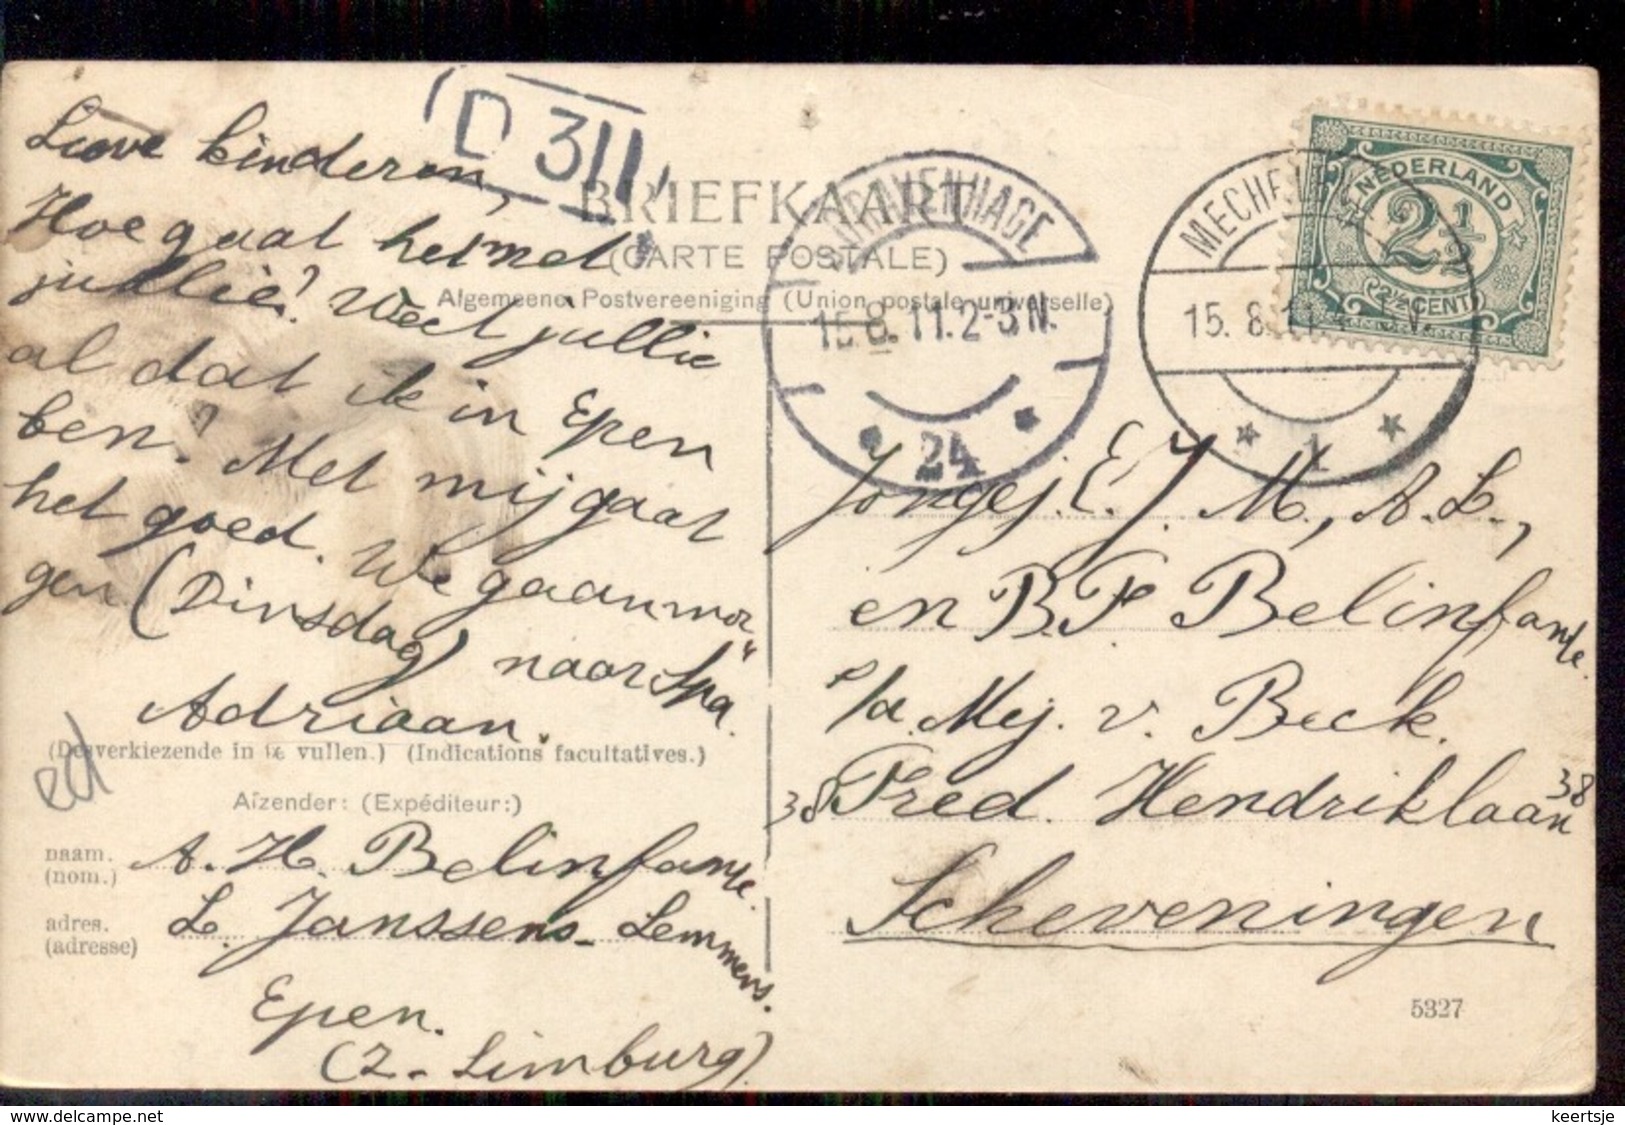 D 311
Lieve kinderen,
Hoe gaat het met
jullie? Weet jullie
al dat ik in Epen
ben? Met mij gaat
het goed. We gaan mor
gen (Dinsdag) naar „Spa“
Adriaan.
BRIEFKAART
(CARTE POSTALE)
Algemeene Postvereeniging (Union postale universelle)
'S GRAVENHAGE
15.8.11.2-3N.
24
MECHE
15. 8.11
N.
1
NEDERLAND
2½
(2½ CENT)
Jongej. E. J. M., A. L.,
en B. F. Belinfante.
p/a Mej. v. Beck.
38 Fred. Hendriklaan 38
Scheveningen
(Desverkiezende in te vullen.) (Indications facultatives.)
ed
Afzender: (Expéditeur:)
naam. A. H. Belinfante.
(nom.)
adres. L. Janssens-Lemmens.
(adresse)
Epen.
(Z.-Limburg)
5327
www.delcampe.net
keertsje